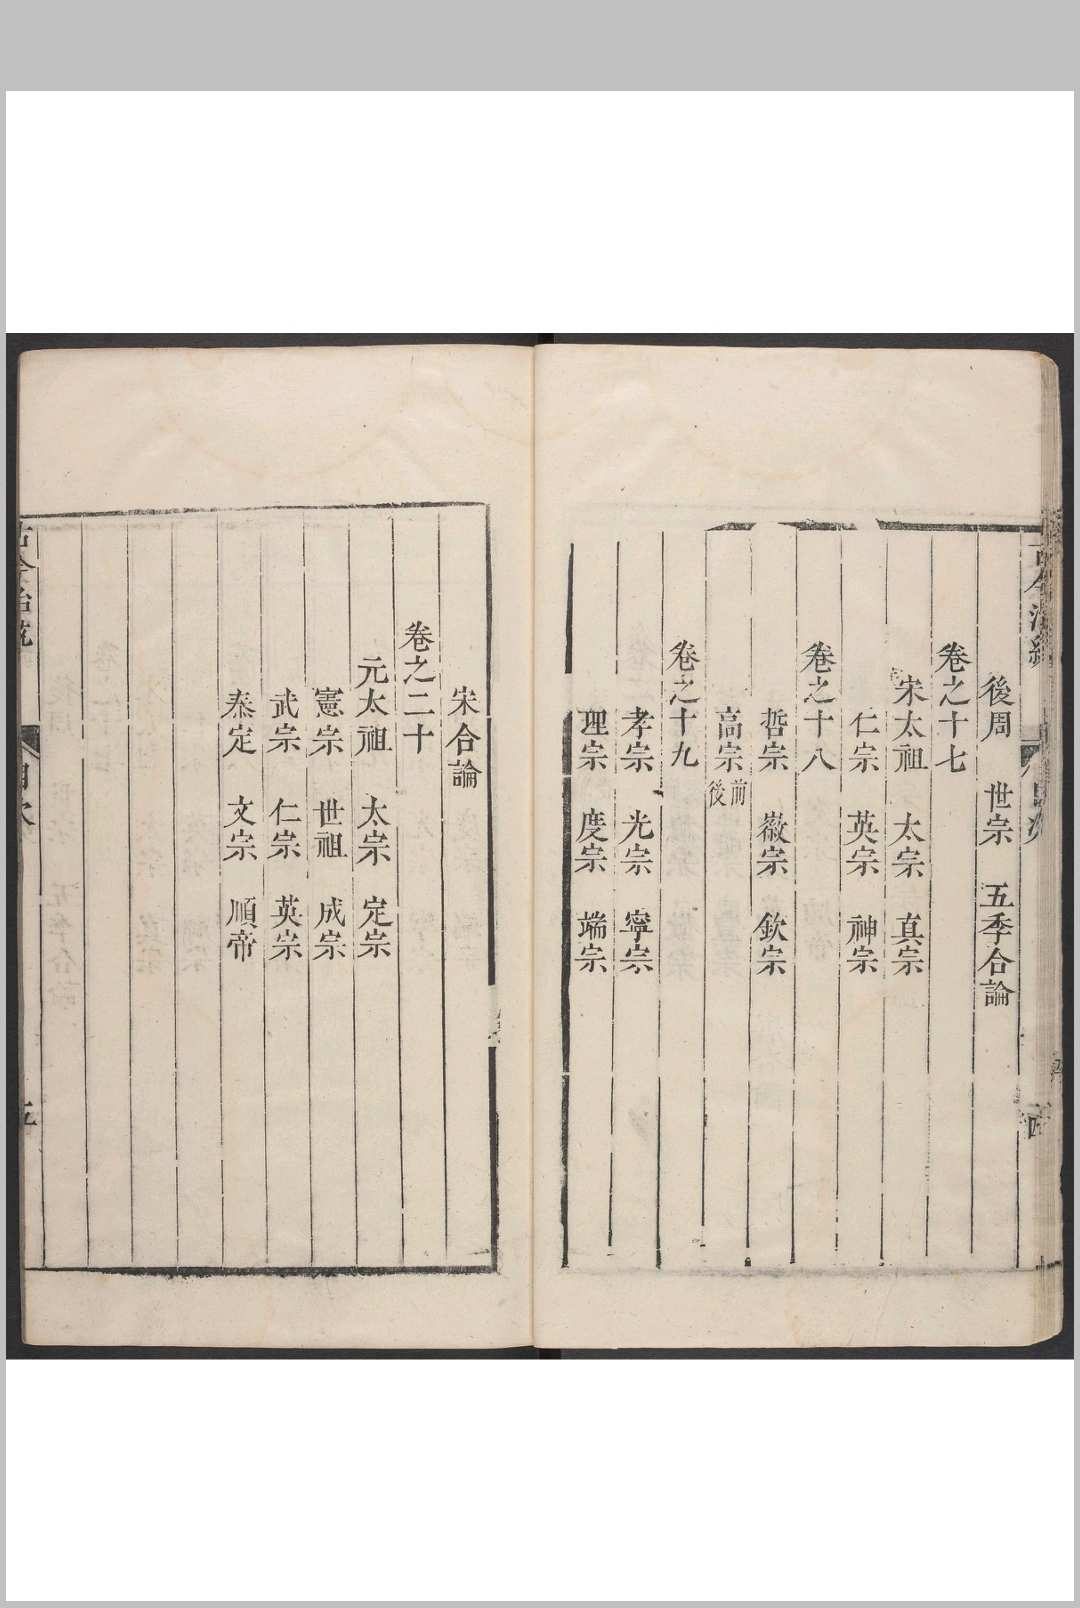 後周 世宗 五季合論
卷之十七
宋太祖 太宗 真宗
仁宗 英宗 神宗
卷之十八
哲宗 徽宗 欽宗
高宗前後
卷之十九
孝宗 光宗 寧宗
理宗 度宗 端宗
宋合論
卷之二十
元太祖 太宗 定宗
憲宗 世祖 成宗
武宗 仁宗 英宗
泰定 文宗 順帝